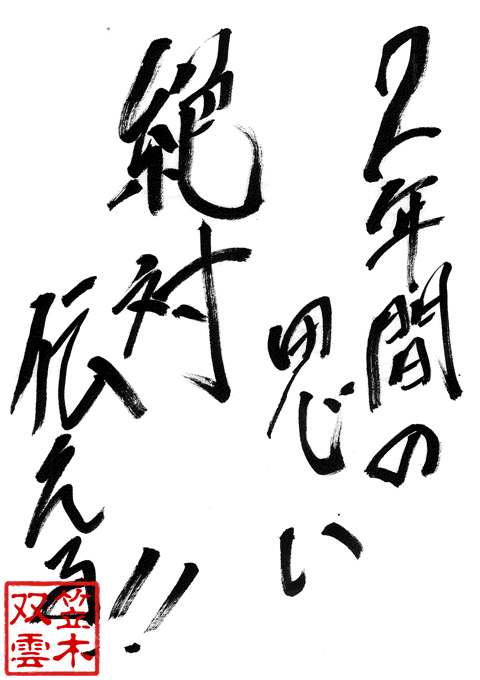 2年間の
思い
絶対
伝える!!
笠木
双雲